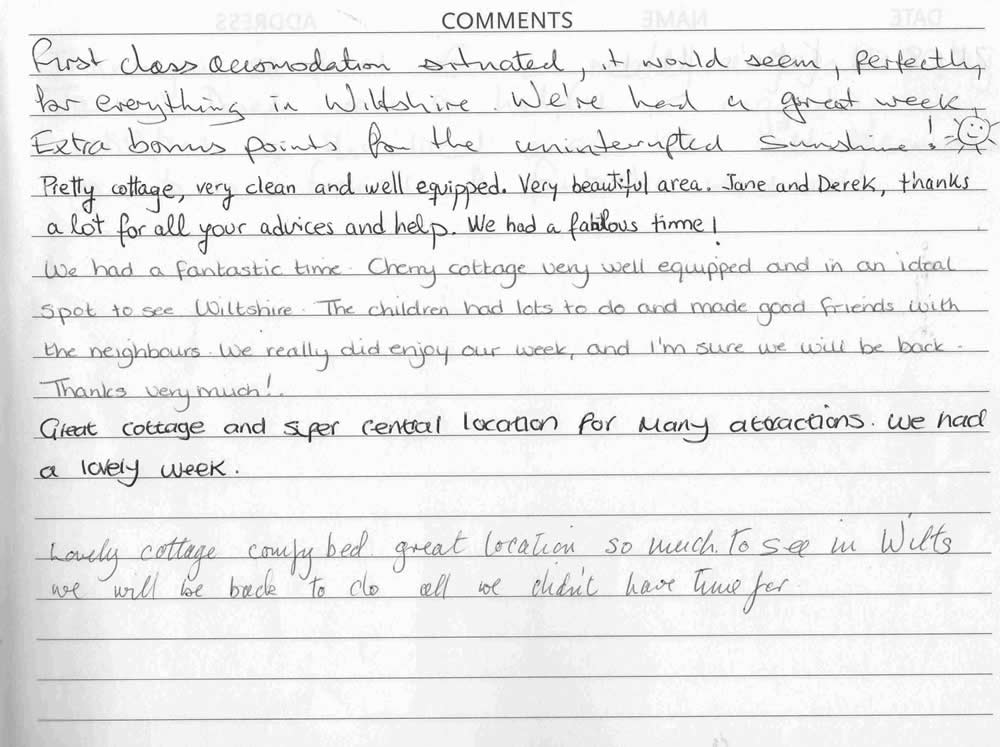 COMMENTS
First class accomodation situated, it would seem, perfectly
for everything in Wiltshire. We're had a great week.
Extra bonus points for the uninterrupted sunshine!
Pretty cottage, very clean and well equipped. Very beautiful area. Jane and Derek, thanks
a lot for all your advices and help. We had a fabulous time!
We had a fantastic time. Cherry cottage very well equipped and in an ideal
spot to see Wiltshire. The children had lots to do and made good friends with
the neighbours. We really did enjoy our week, and I'm sure we will be back.
Thanks very much!.
Great cottage and super central location for many attractions. We had
a lovely week.
Lovely cottage comfy bed great location so much to see in Wilts
we will be back to do all we didn't have time for